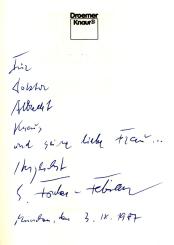 Droemer
Knaur®
Für
Doktor
Albrecht
Knaus,
und seine liebe Frau...
Herzlichst
S. Fischer-Fabian
München, den 3. IX. 1987